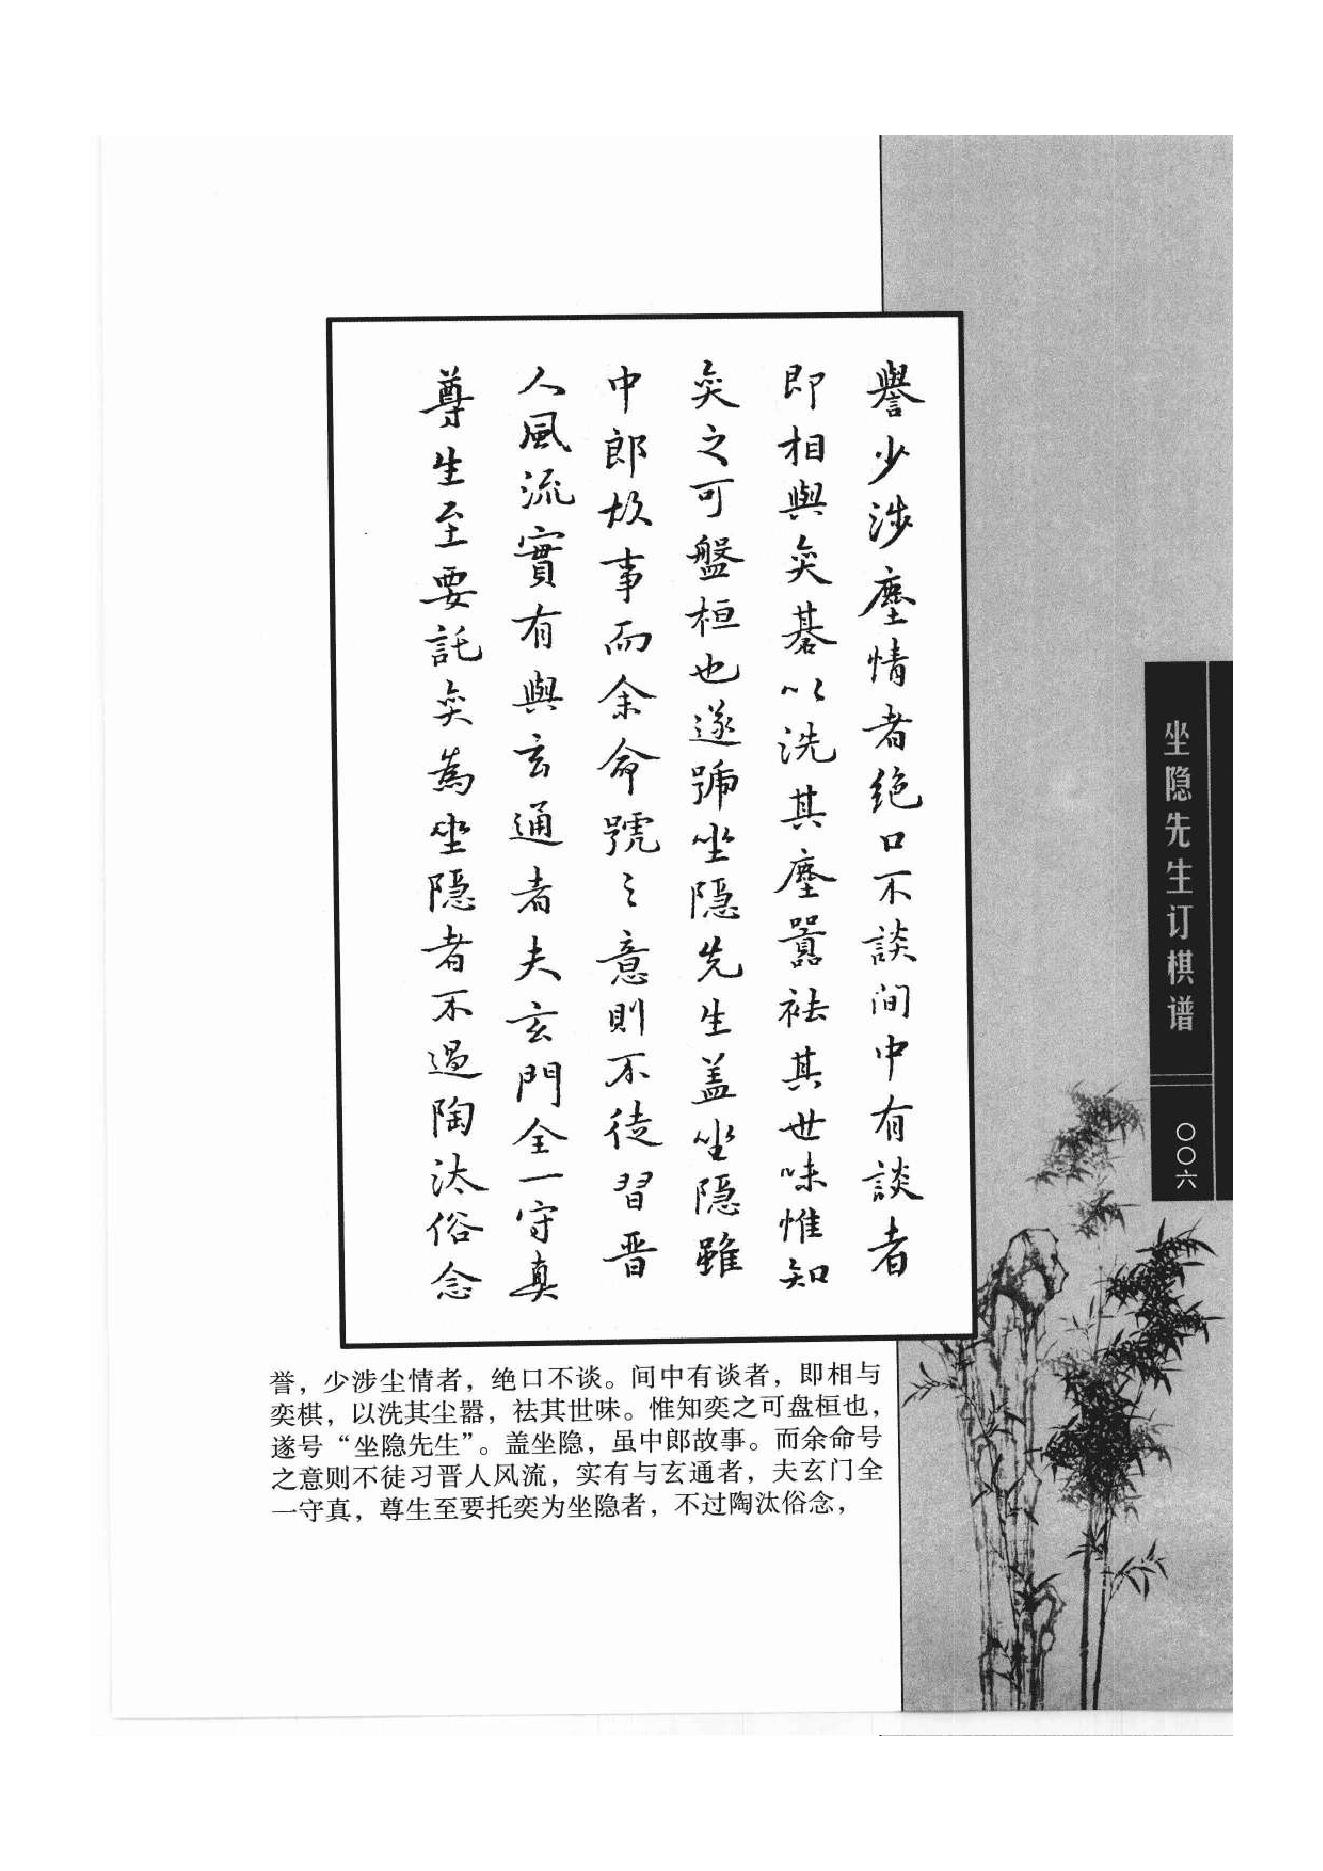 譽少涉塵情者绝口不談间中有談者
即相與奕碁以洗其塵囂袪其世味惟知
奕之可盤桓也遂號坐隐先生盖坐隐雖
中郎故事而余命號之意則不徒習晋
人風流實有與玄通者夫玄門全一守真
尊生至要託奕為坐隐者不過陶汰俗念
誉，少涉尘情者，绝口不谈。间中有谈者，即相与
奕棋，以洗其尘嚣，祛其世味。惟知奕之可盘桓也，
遂号“坐隐先生”。盖坐隐，虽中郎故事。而余命号
之意则不徒习晋人风流，实有与玄通者，夫玄门全
一守真，尊生至要托奕为坐隐者，不过陶汰俗念，
坐隐先生订棋谱
〇〇六